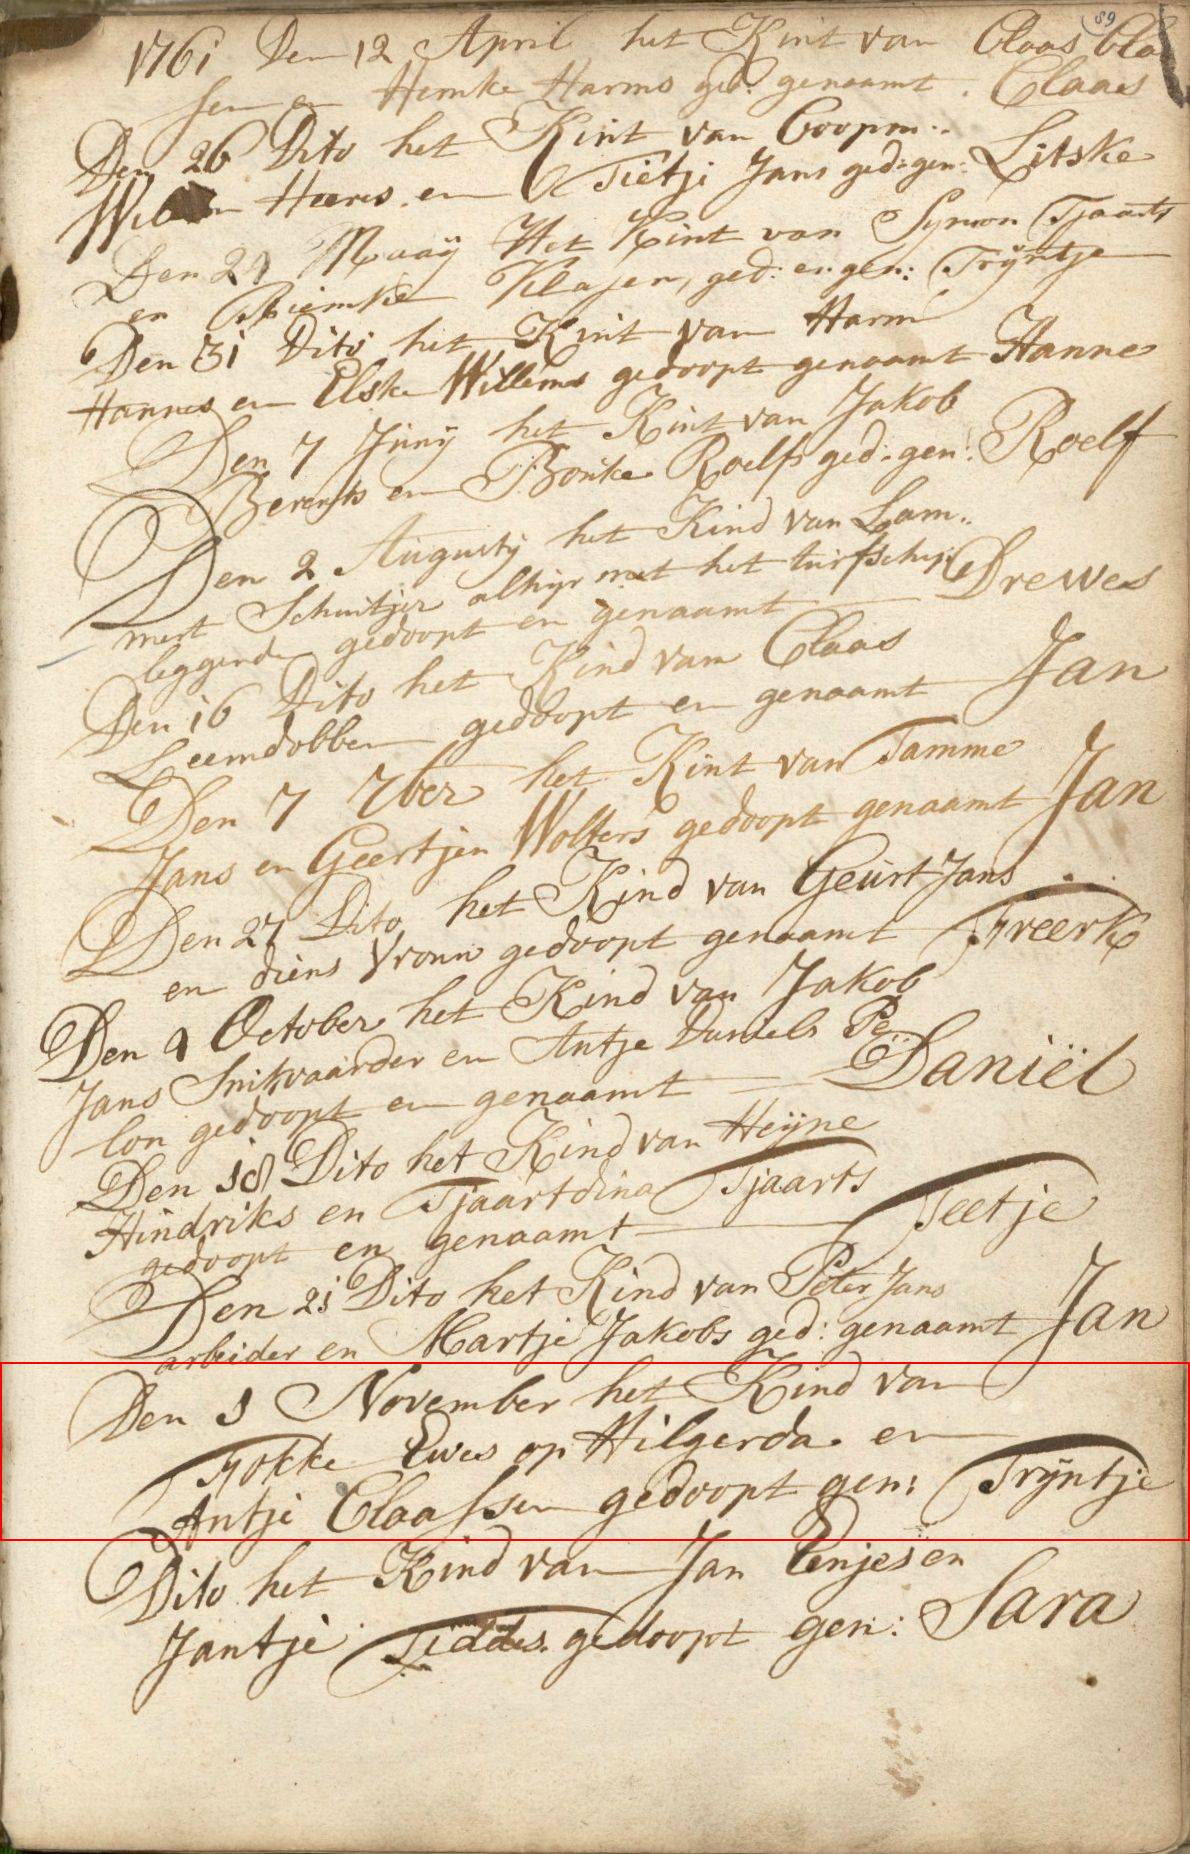 89
1761 Den 12 April het Kint van Claas Cla
sen en Hemke Harms ged: genaamt. Claas
Den 26 Dito het Kint van Coopm..
Willem Heeres. en Tietji Jans ged: gen: Litske
Den 24 Maaij Het Kint van Symon Tjaarts
en Riemke Klasen, ged: en gen: Trÿntje
Den 31 Dito het Kint van Harm
Hannes en Elske Willems gedoopt genaamt Hanne
Den 7 Junij het Kint van Jakob
Berents en Bonke Roelfs ged: gen: Roelf
Den 2 Augustij het Kind van Lam..
mert Schuitjer alhijr met het turfschip
leggende gedoopt en genaamt Drewes
Den 16 Dito het Kind van Claas
Leemdobben gedoopt en genaamt Jan
Den 7 7ber het Kint van Tamme
Jans en Geertjen Wolters gedoopt genaamt Jan
Den 27 Dito het Kind van Geurt Jans
en diens Vrouw gedoopt genaamt Freerk
Den 4 October het Kind van Jakob
Jans Snikvaarder en Antje Daniels Pe..
lon gedoopt en genaamt Daniël
Den 18 Dito het Kind van Heijne
Hindriks en Tjaartdina Tjaarts
gedoopt en genaamt Teetje
Den 21 Dito het Kind van Peter Jans
arbeider en Martje Jakobs ged: genaamt Jan
Den 1 November het Kind van
Fokke Ewes op Hilgerda en
Antje Claassen gedoopt gen: Trÿntje
Dito het Kind van Jan Enjes en
Jantje Siddes. gedoopt gen: Sara